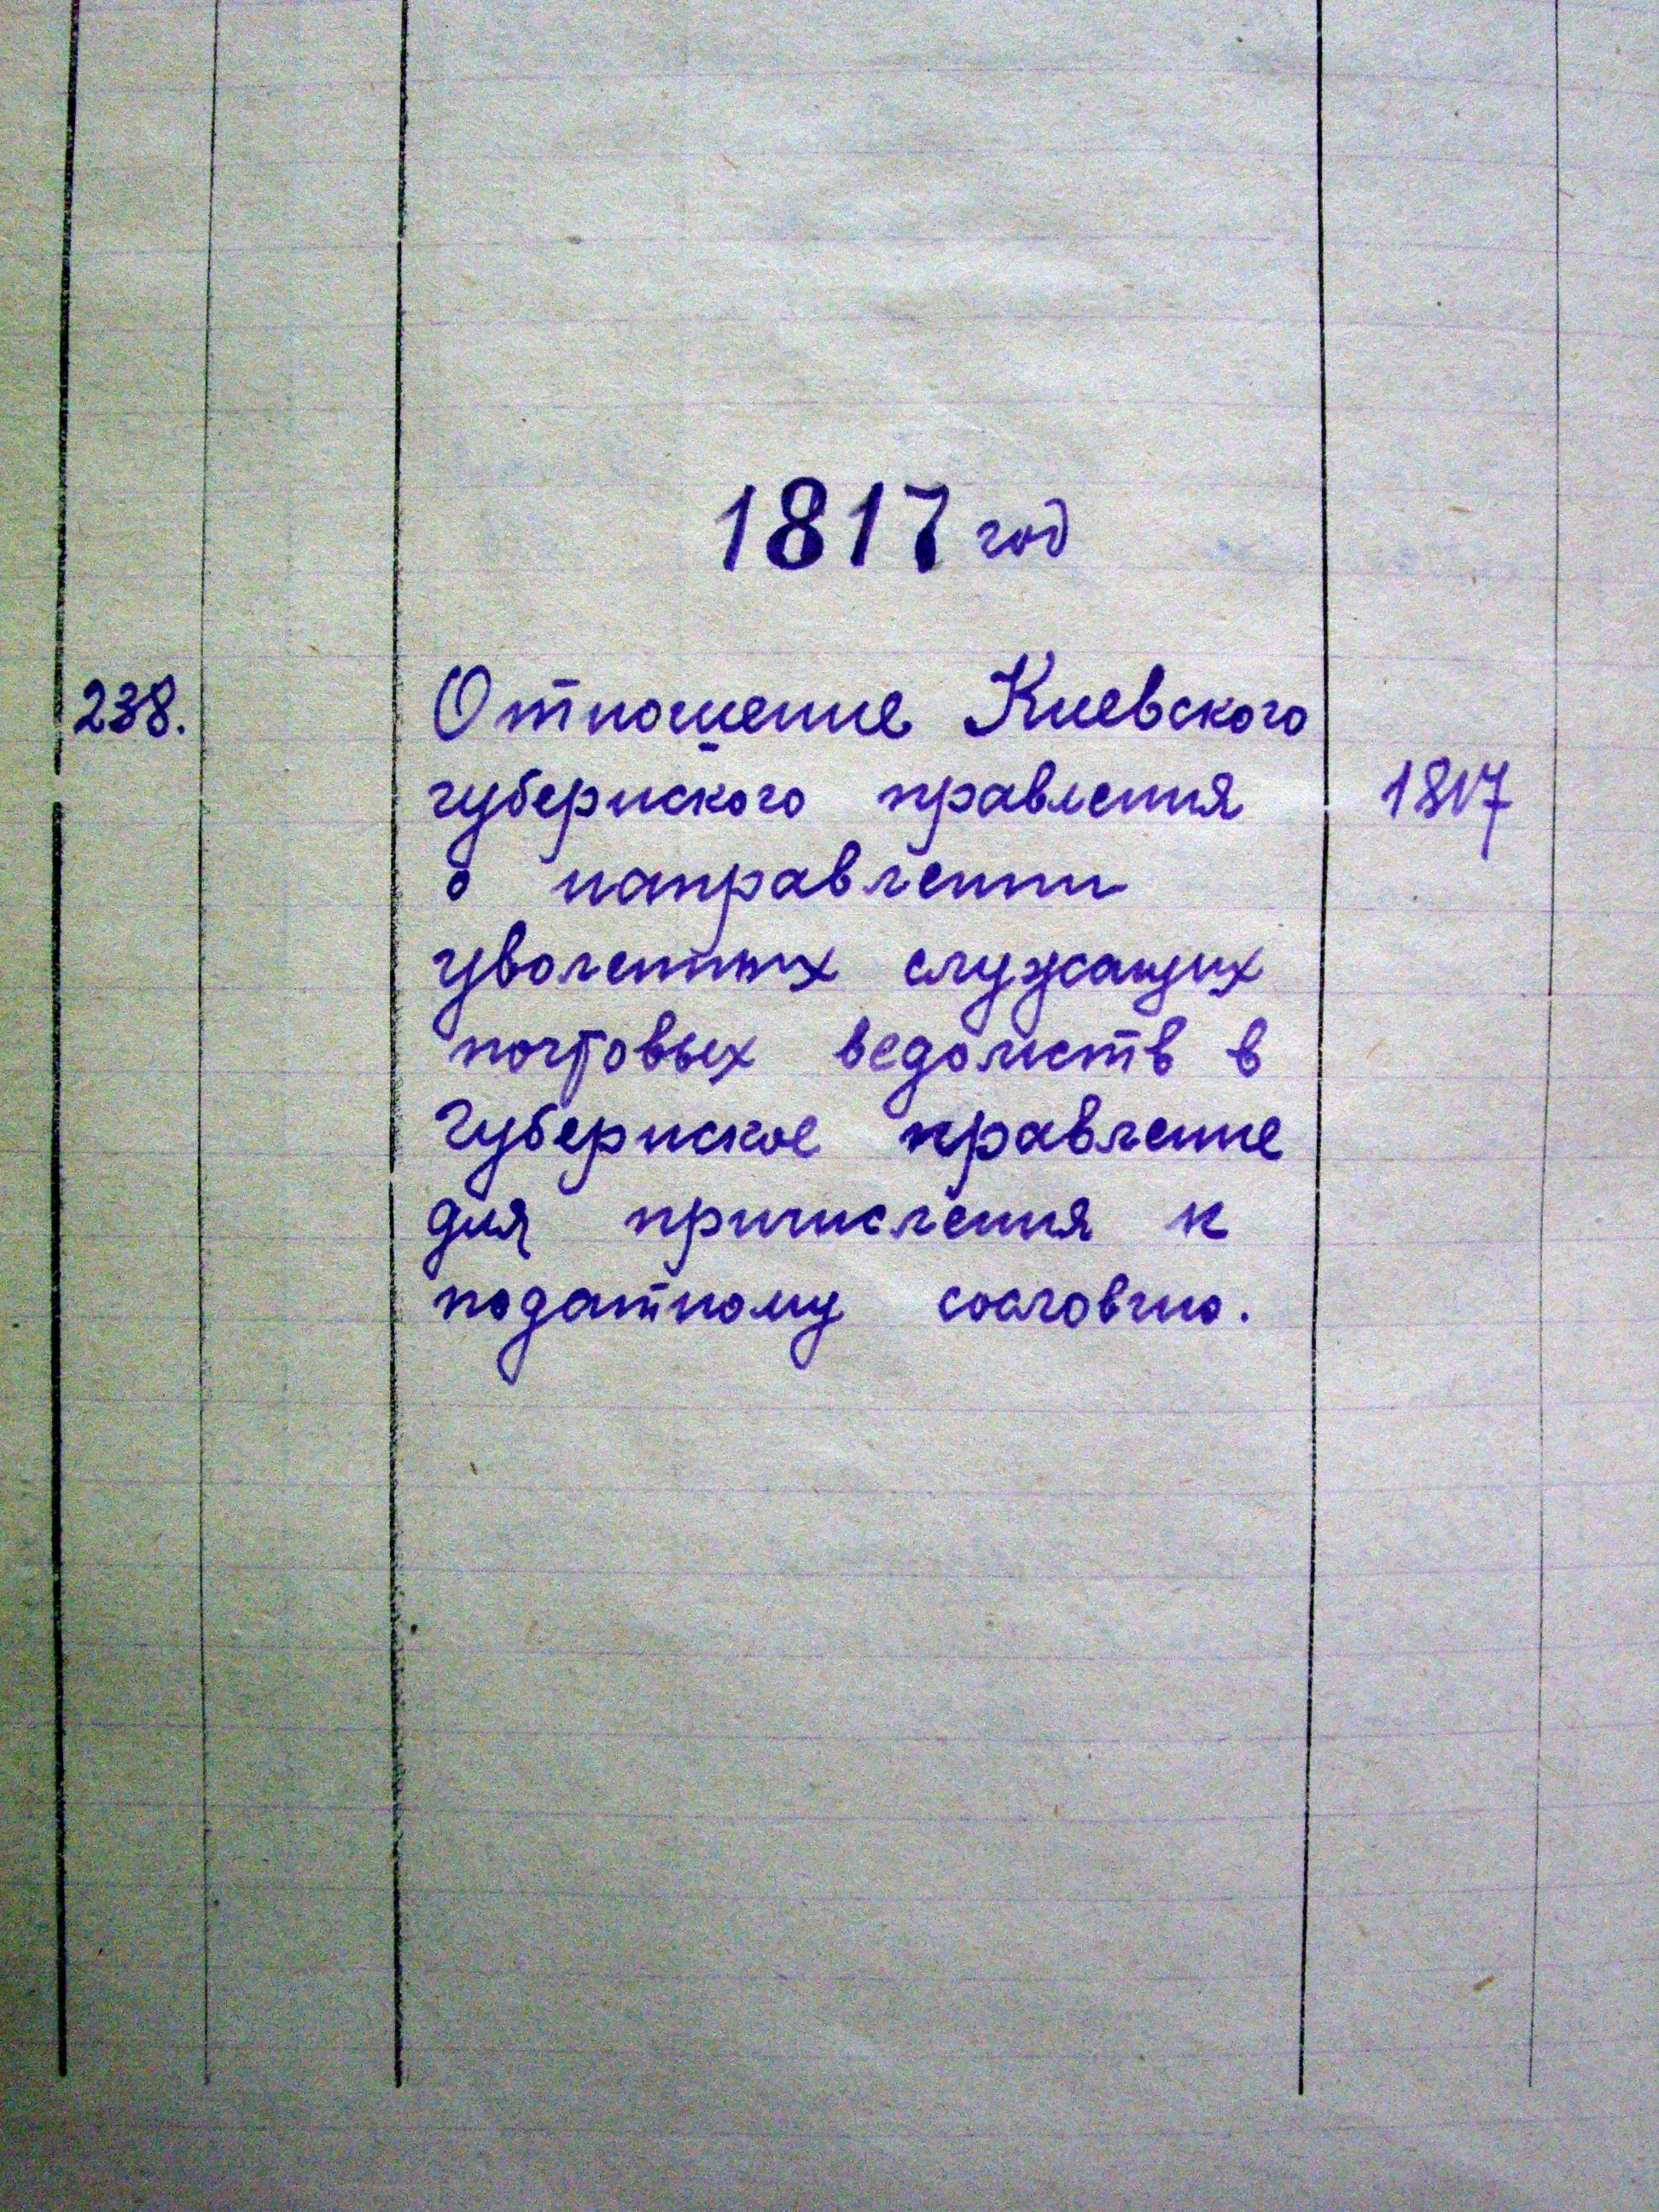 1817 год
238. Отношение Киевского
губернского правления 1817
о направлении
уволенных служащих
почтовых ведомств в
губернское правление
для причисления к
податному сословию.